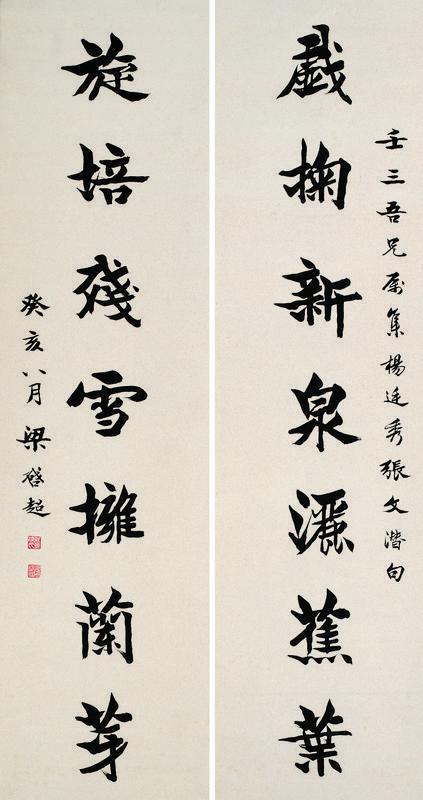 壬三吾兄属集楊廷秀張文潛句
戲掬新泉灑蕉葉
旋培殘雪擁蘭芽
癸亥八月梁啓超